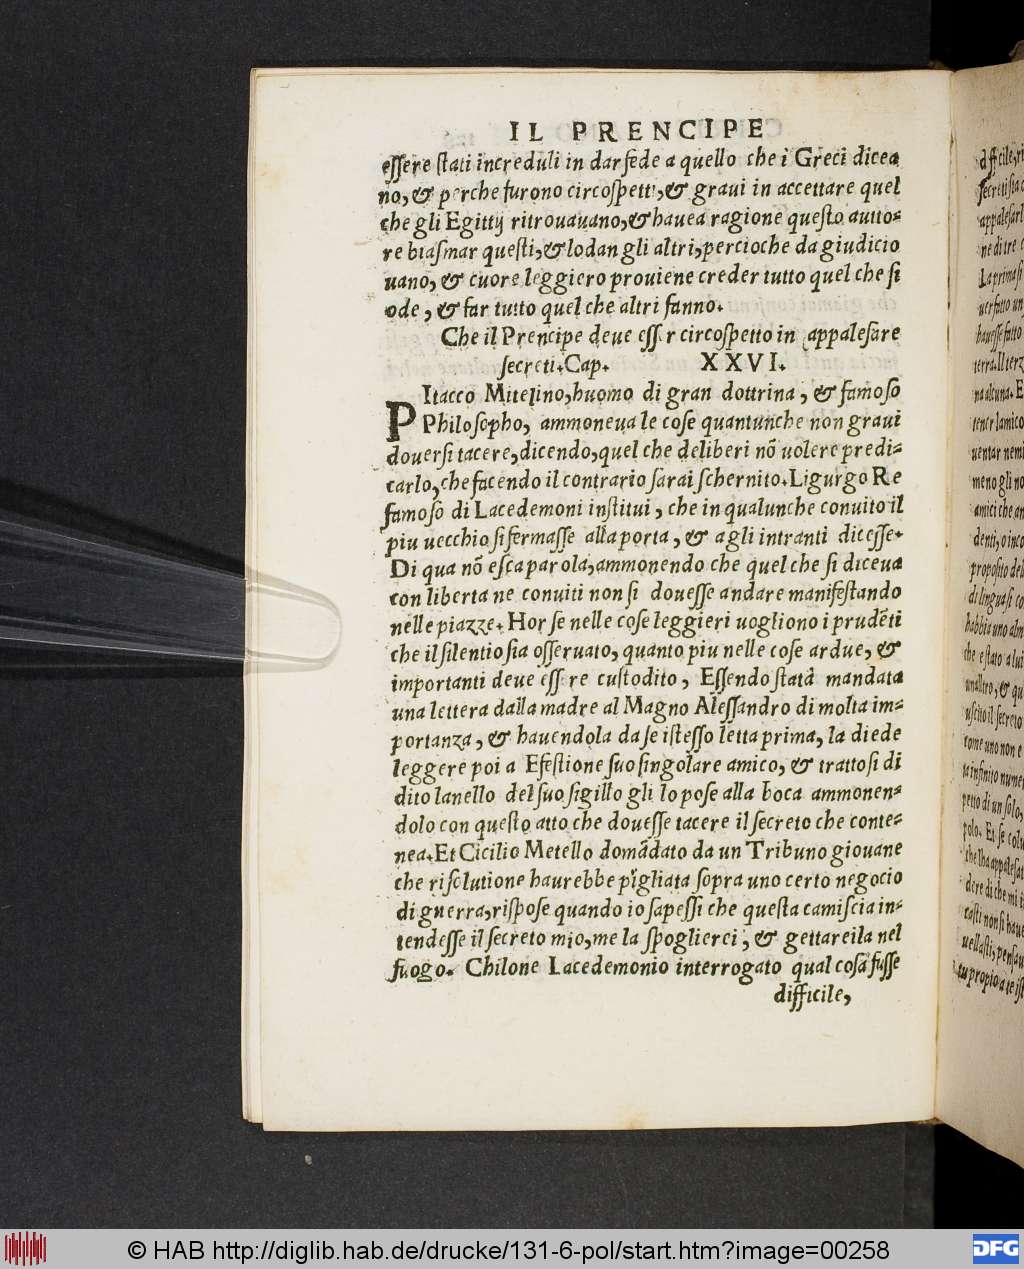 IL PRENCIPE
essere stati increduli in dar fede a quello che i Greci dicea
no, & perche furono circospetti, & graui in accettare quel
che gli Egittij ritrouauano, & hauea ragione questo autto-
re biasmar questi, & lodan gli altri, percioche da giudicio
uano, & cuore leggiero prouiene creder tutto quel che si
ode, & far tutto quel che altri fanno.
Che il Prencipe deue esser circospetto in appalesare
secreti. Cap. XXVI.
PItacco Mitelino, huomo di gran dottrina, & famoso
Philosopho, ammoneua le cose quantunche non graui
douersi tacere, dicendo, quel che deliberi nõ uolere predi-
carlo, che facendo il contrario sarai schernito. Ligurgo Re
famoso di Lacedemoni institui, che in qualunche conuito il
piu uecchio si fermasse alla porta, & agli intranti dicesse.
Di qua nõ esca parola, ammonendo che quel che si diceua
con liberta ne conuiti non si douesse andare manifestando
nelle piazze. Hor se nelle cose leggieri uogliono i prudẽti
che il silentio sia osseruato, quanto piu nelle cose ardue, &
importanti deue essere custodito, Essendo stata mandata
una lettera dalla madre al Magno Alessandro di molta im-
portanza, & hauendola da se istesso letta prima, la diede
leggere poi a Efestione suo singolare amico, & trattosi di
dito lanello del suo sigillo gli lo pose alla boca ammonen-
dolo con questo atto che douesse tacere il secreto che conte-
nea. Et Cicilio Metello domãdato da un Tribuno giouane
che risolutione haurebbe pigliata sopra uno certo negocio
di guerra, rispose quando io sapessi che questa camiscia in-
tendesse il secreto mio, me la spoglierei, & gettareila nel
fuogo. Chilone Lacedemonio interrogato qual cosa fusse
difficile,
© HAB http://diglib.hab.de/drucke/131-6-pol/start.htm?image=00258
DFG